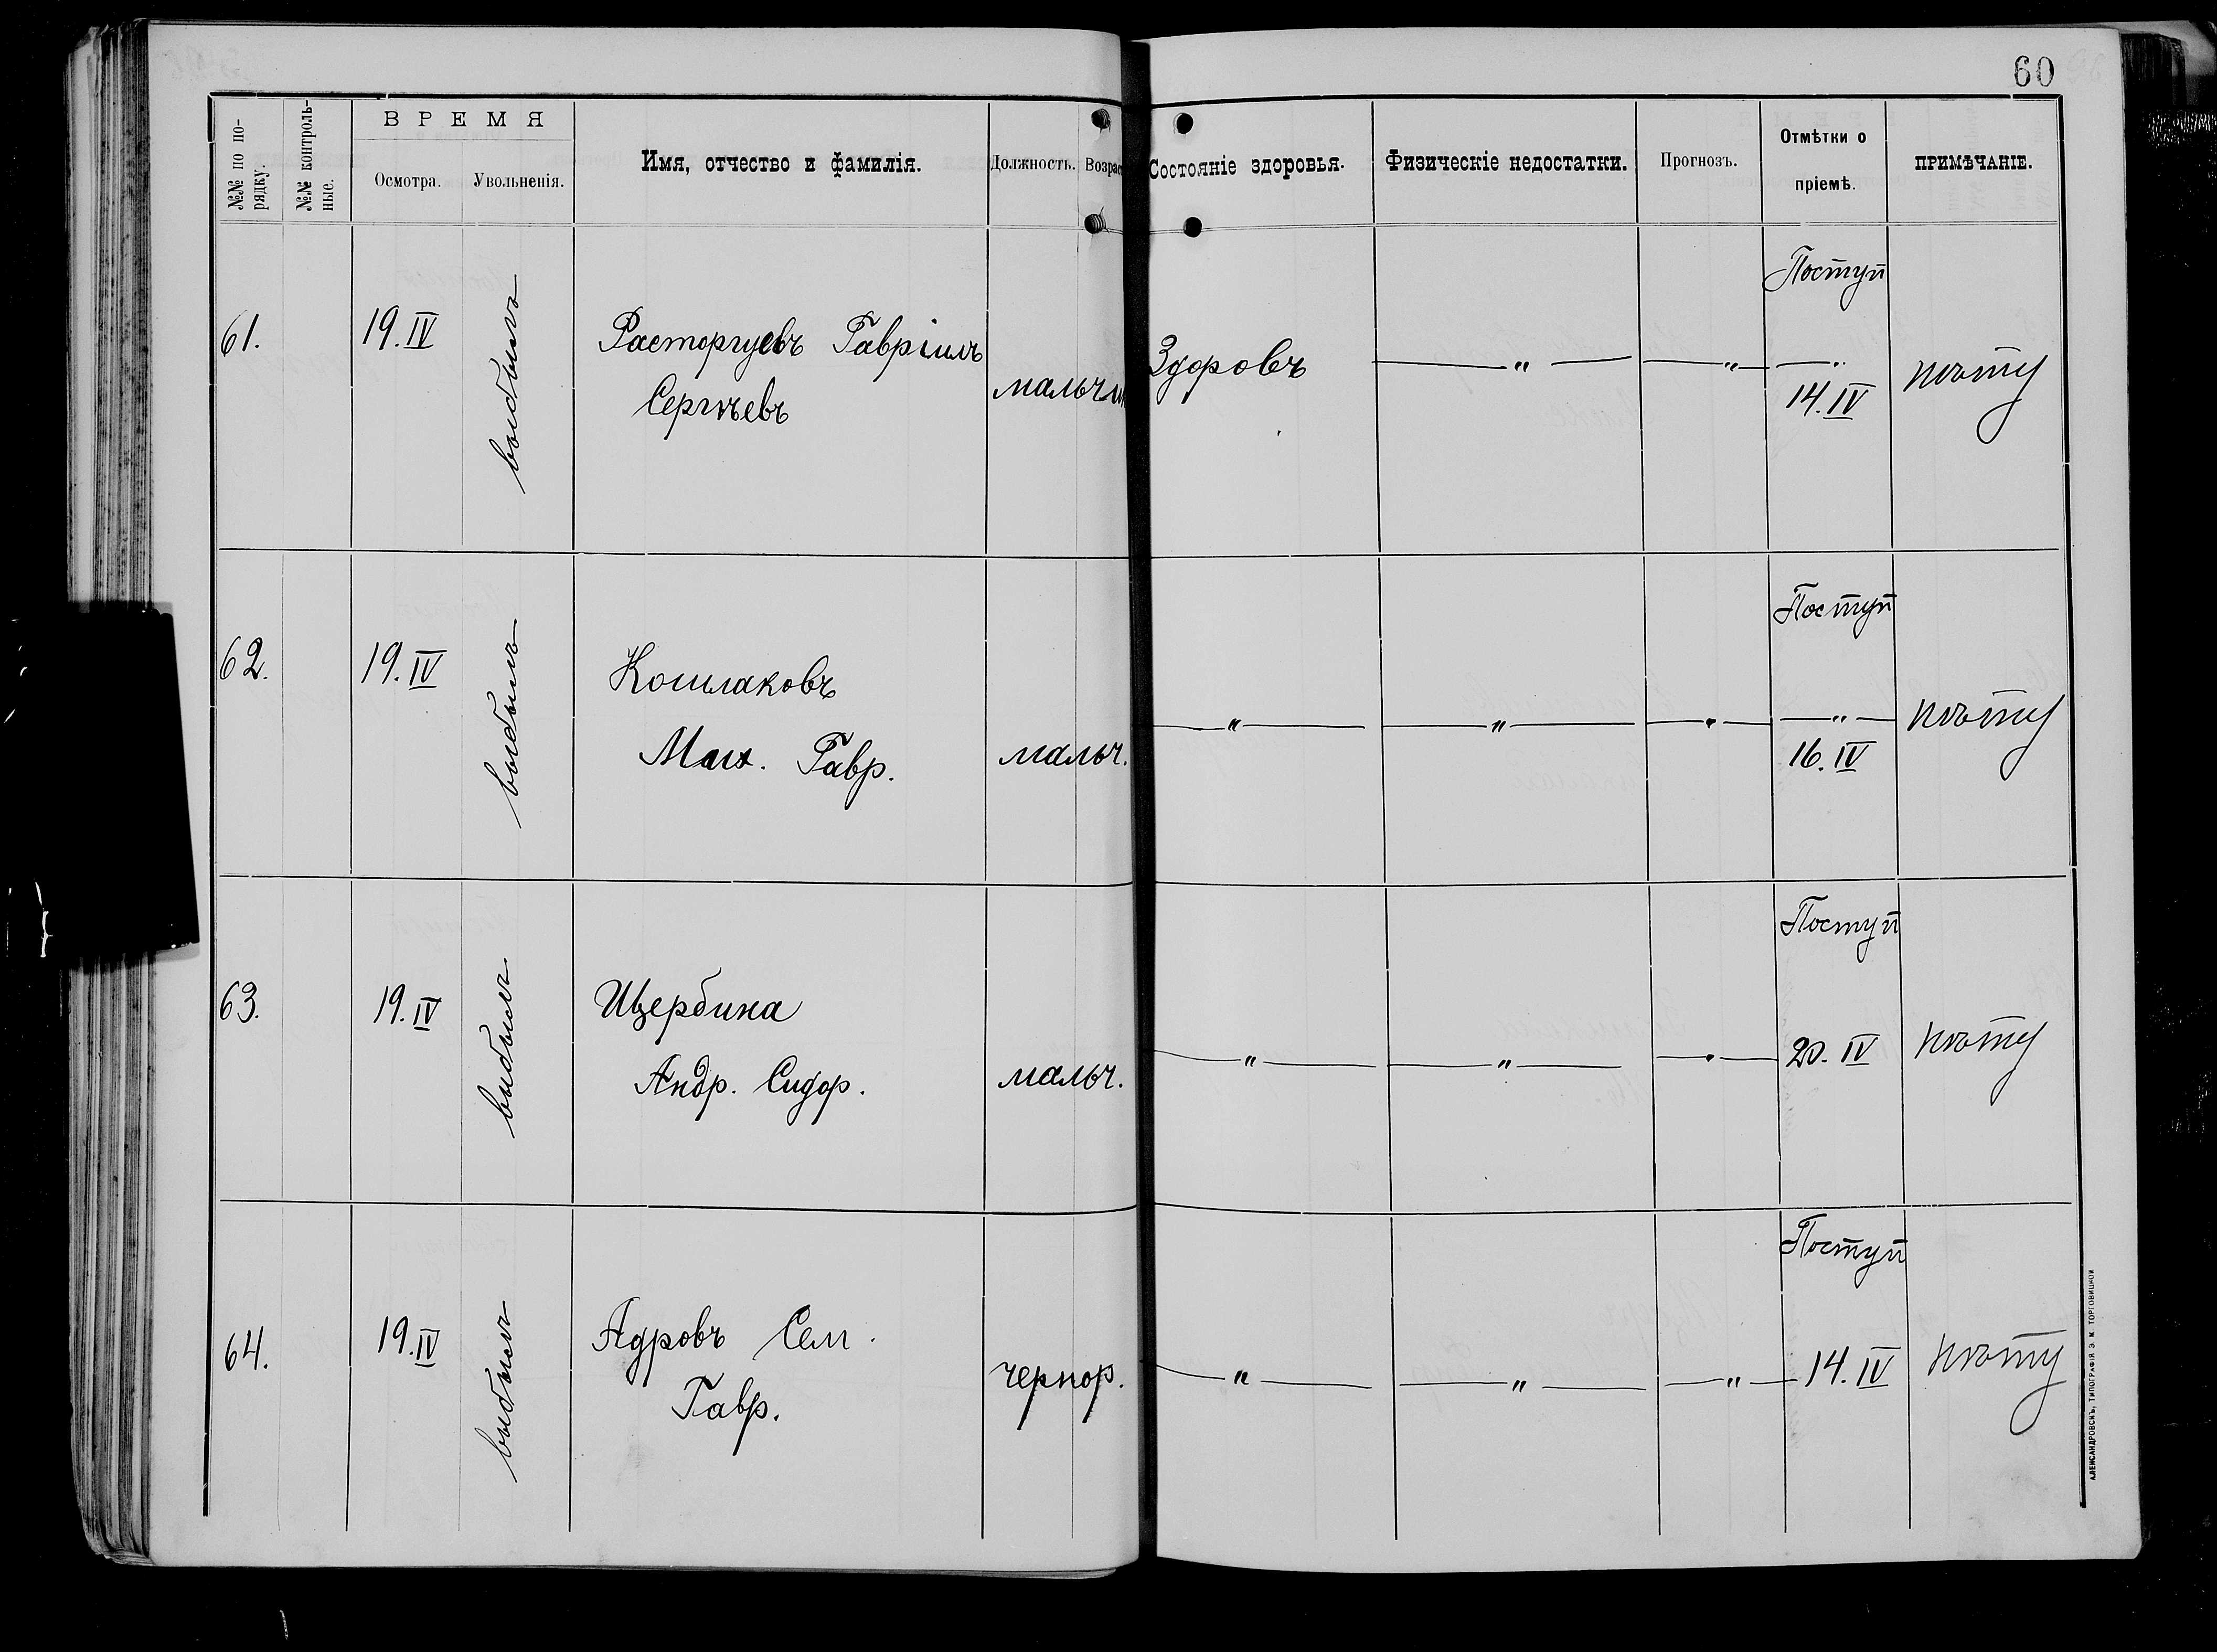 60
№№ по по-
рядку.
№№ контроль-
ные.
ВРЕМЯ
Осмотра.
Увольненія.
Имя, отчество и фамилія.
Должность.
Возрас
Состояніе здоровья.
Физическіе недостатки.
Прогнозъ.
Отмѣтки о
пріемѣ.
ПРИМѢЧАНІЕ.
61.
19.IV
выбылъ
Расторгуевъ Гавріилъ
Сергѣевъ
мальчи
Здоровъ
— " —
— " —
Поступ
— " —
14.IV
62.
19.IV
выбылъ
Кошлаковъ
Мих. Гавр.
мальч.
— " —
— " —
— " —
Поступ
— " —
16.IV
63.
19.IV
выбылъ
Щербина
Андр. Сидор.
мальч.
— " —
— " —
— " —
Поступ
20.IV
64.
19.IV
выбылъ
Адровъ Сем.
Гавр.
чернор.
— " —
— " —
— " —
Поступ
14.IV
АЛЕКСАНДРОВСКЪ, ТИПОГРАФІЯ Э. М. ТОРГОВИЦКОЙ